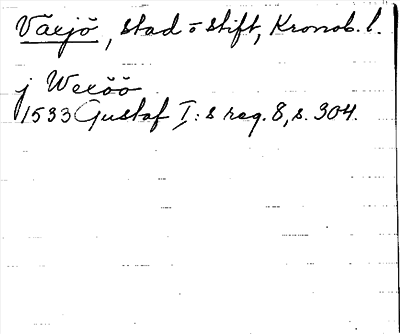 Växjö, stad o stift, Kronob. l.
j Wexöö
1533 Gustaf I:s reg. 8, s. 304.